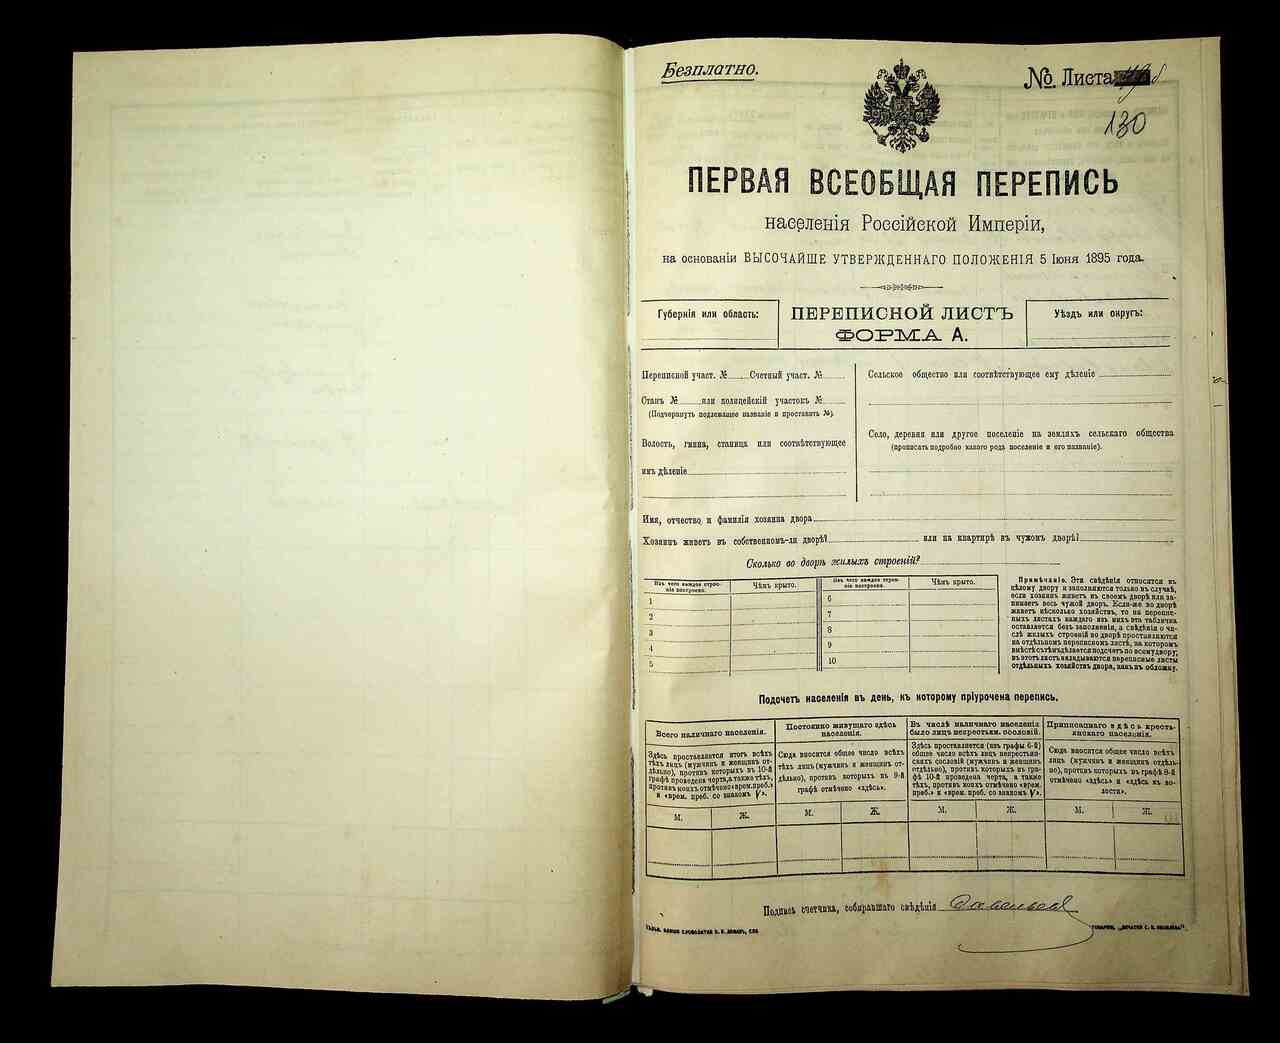 Безплатно.
№. Листа
130
ПЕРВАЯ ВСЕОБЩАЯ ПЕРЕПИСЬ
населенія Россійской Имперіи,
на основаніи ВЫСОЧАЙШЕ УТВЕРЖДЕННАГО ПОЛОЖЕНІЯ 5 Іюня 1895 года.
Губернія или область:
ПЕРЕПИСНОЙ ЛИСТЪ
ФОРМА А.
Уѣздъ или округъ:
Переписной участ. № Счетный участ. №
Станъ № или полицейскій участокъ №
(Подчеркнуть подлежащее названіе и проставить №).
Волость, гмина, станица или соотвѣтствующее
имъ дѣленіе
Сельское общество или соотвѣтствующее ему дѣленіе
Село, деревня или другое поселеніе на земляхъ сельскаго общества
(прописать подробно какого рода поселеніе и его названіе).
Имя, отчество и фамилія хозяина двора
Хозяинъ живетъ въ собственномъ-ли дворѣ? или на квартирѣ въ чужомъ дворѣ?
Сколько во дворѣ жилыхъ строеній?
Изъ чего каждое строе-
ніе построено.
Чѣмъ крыто.
1
2
3
4
5
Изъ чего каждое строе-
ніе построено.
Чѣмъ крыто.
6
7
8
9
10
Примѣчаніе. Эти свѣдѣнія относятся къ
цѣлому двору и заполняются только въ случаѣ,
если хозяинъ живетъ въ своемъ дворѣ или за-
нимаетъ весь чужой дворъ. Если-же во дворѣ
живетъ нѣсколько хозяйствъ, то на перепис-
ныхъ листахъ каждаго изъ нихъ эта табличка
оставляется безъ заполненія, а свѣдѣнія о чи-
слѣ жилыхъ строеній во дворѣ проставляются
на отдѣльномъ переписномъ листѣ, на которомъ
вмѣстѣ съ тѣмъ дѣлается подсчетъ по всему двору;
въ этотъ листъ вкладываются переписные листы
отдѣльныхъ хозяйствъ двора, какъ въ обложку.
Подсчетъ населенія въ день, къ которому пріурочена перепись.
Всего наличнаго населенія.
Здѣсь проставляется итогъ всѣхъ
тѣхъ лицъ (мужчинъ и женщинъ от-
дѣльно), противъ которыхъ въ 10-й
графѣ проведена черта, а также тѣхъ,
противъ коихъ отмѣчено «врем. преб.»
и «врем. преб. со знакомъ V».
М. Ж.
Постоянно живущаго здѣсь
населенія.
Сюда вносится общее число всѣхъ
тѣхъ лицъ (мужчинъ и женщинъ от-
дѣльно), противъ которыхъ въ 9-й
графѣ отмѣчено «здѣсь».
М. Ж.
Въ числѣ наличнаго населенія
было лицъ некрестьян. сословій.
Здѣсь проставляется (изъ графы 6-й)
общее число всѣхъ лицъ некрестьян-
скихъ сословій (мужчинъ и женщинъ
отдѣльно), противъ которыхъ въ гра-
фѣ 10-й проведена черта, а также
тѣхъ, противъ коихъ отмѣчено «врем.
преб.» и «врем. преб. со знакомъ V».
М. Ж.
Приписаннаго здѣсь кресть-
янскаго населенія.
Сюда вносится общее число всѣхъ
лицъ (мужчинъ и женщинъ отдѣль-
но), противъ которыхъ въ графѣ 8-й
отмѣчено «здѣсь» и «здѣсь къ во-
лости».
М. Ж.
Подпись счетчика, собиравшаго свѣдѣнія